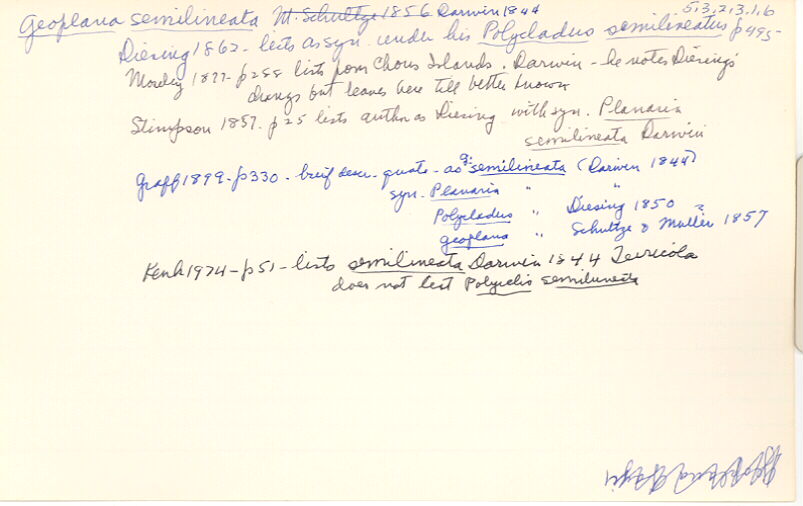 Geoplana semilineata M. Schultze 1856 Darwin 1844 5,3,2,3,1,6
Diesing 1862 - lists as syn. under his Polycladus semilineatus p 495-
Moseley 1877 - p 288 lists from Chonos Islands. Darwin - he notes Diesing's
change but leaves here till better known
Stimpson 1857. p 25 lists author as Diesing with syn. Planaria
semilineata Darwin
Graff 1899 - p 330 - brief descr. quote - as g. semilineata (Darwin 1844)
syn. Planaria " "
Polycladus " Diesing 1850 ?
Geoplana " Schultze & Muller 1857
Kenk 1974 - p 51 - lists semilineata Darwin 1844 Terricola
does not list Polycladus semilineata